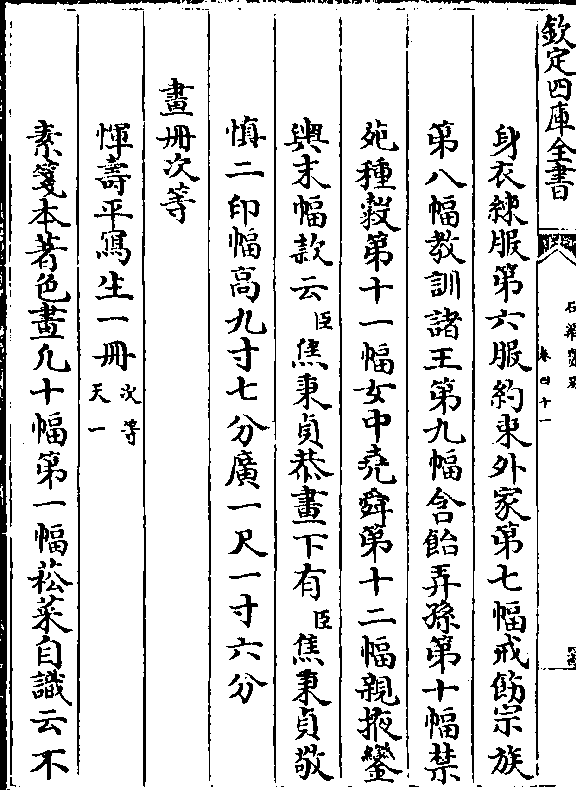 欽定四庫全書
卷四十一
身衣練服第六服約束外家第七幅戒飭宗族
第八幅教訓諸王第九幅含飴弄孫第十幅禁
苑種穀第十一幅女中堯舜第十二幅親掖鑾
輿末幅款云臣焦秉貞恭畫下有臣焦秉貞敬
慎二印幅高九寸七分廣一尺一寸六分
畫冊次等
惲壽平寫生一冊次等天一
素箋本著色畫凡十幅第一幅菘菜自識云不